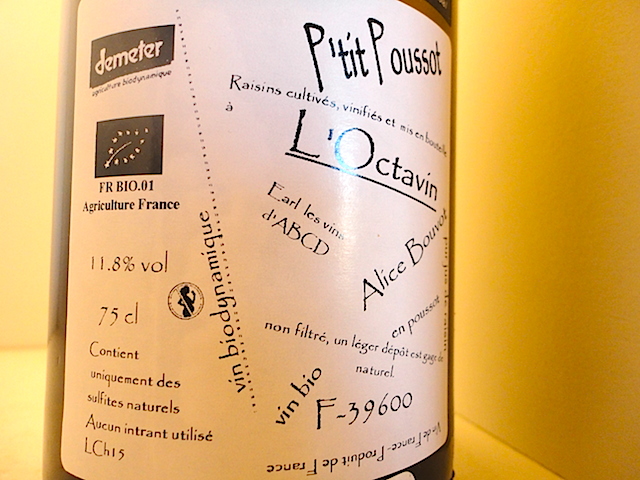 demeter
agriculture biodynamique
FR BIO.01
Agriculture France
11.8% vol
75 cl
Contient
uniquement des
sulfites naturels
Aucun intrant utilisé
LCh15
vin biodynamique
P'tit Poussot
Raisins cultivés, vinifiés et mis en bouteille
à
L'Octavin
Earl les vins
d'ABCD
Alice Bouvot
en poussot
non filtré, un léger dépôt est gage de
naturel.
vin bio
F-39600
Vin de France - Produit de France